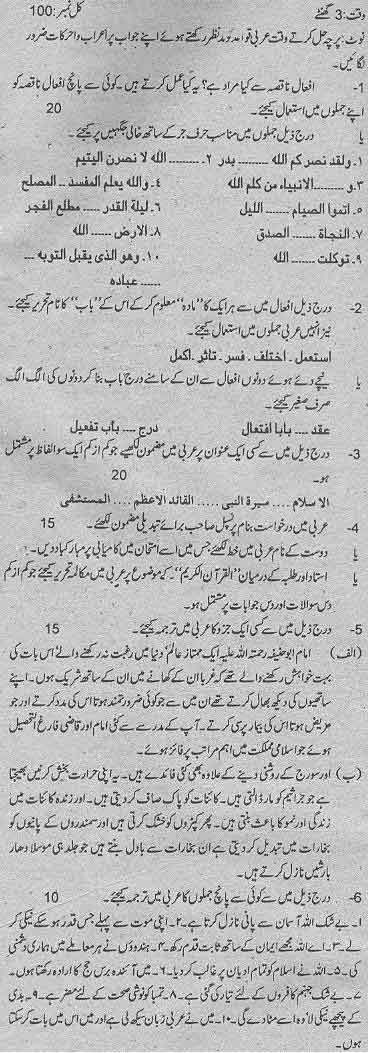 وقت: 3 گھنٹے کل نمبر: 100
نوٹ: پرچہ حل کرتے وقت عربی قواعد کو مدنظر رکھتے ہوئے اپنے جواب پر اعراب و حرکات ضرور
لگائیں۔
1- افعال ناقصہ سے کیا مراد ہے؟ یہ کیا عمل کرتے ہیں۔ کوئی سے پانچ افعال ناقصہ کو
اپنے جملوں میں استعمال کیجئے۔ 20
یا درج ذیل جملوں میں مناسب حرف جر کے ساتھ خالی جگہیں پر کیجئے۔
۱۔ ولقد نصر کم الله ــــــــ بدر ۲۔ ــــــــ الله لا نصرن الیتیم
۳۔ و ــــــــ الانبیاء من کلم الله ۴۔ والله یعلم المفسد ــــ المصلح
۵۔ اتموا الصیام ــــــــ اللیل ۶۔ لیلة القدر ــــــــ مطلع الفجر
۷۔ النجاة ــــــــ الصدق ۸۔ الارض ــــــــ الله
۹۔ توکلت ــــــــ الله ۱۰۔ وهو الذی یقبل التوبه ــــ
ــــــــ عباده
2- درج ذیل افعال میں سے ہر ایک کا "مادہ" معلوم کر کے اس کے "باب" کا نام تحریر کیجئے۔
نیز انہیں عربی جملوں میں استعمال کیجئے۔
استعمل ۔ اختلف ۔ فسر ۔ تاثر ۔ اکمل
یا نیچے دئے ہوئے دونوں افعال سے ان کے سامنے درج باب بنا کر دونوں کی الگ الگ
صرف صغیر کیجئے۔
عقد ۔۔۔۔ بابا افتعال درج ۔۔۔۔ باب تفعیل
3- درج ذیل میں سے کسی ایک عنوان پر عربی میں مضمون لکھیے جو کم از کم ایک سو الفاظ پر مشتمل
ہو۔ 20
الاسلام ۔۔۔۔ سیرة النبی ۔۔۔۔۔ القائد الاعظم ۔۔۔۔ المستشفی
4- عربی میں درخواست بنام پرنسپل صاحب برائے تبدیلی مضمون لکھئے۔ 15
یا دوست کے نام عربی میں خط لکھئے جس میں اسے امتحان میں کامیابی پر مبارکباد دیں۔
یا استاد اور طلبہ کے درمیان "القرآن الکریم" کے موضوع پر عربی میں مکالمہ تحریر کیجئے جو کم از کم
دس سوالات اور دس جوابات پر مشتمل ہو۔
5- درج ذیل میں سے کسی ایک جزو کا عربی میں ترجمہ کیجئے۔ 15
(الف) امام ابو حنیفہ رحمتہ اللہ علیہ ایک ممتاز عالم، دنیا میں رغبت نہ رکھنے والے، اس بات کی
بہت خواہش رکھنے والے تھے کہ غربا ان کے کھانے میں ان کے ساتھ شریک ہوں۔ اپنے
ساتھیوں کی دیکھ بھال کرتے تھے ان میں سے جو کوئی ضرورتمند ہوتا اس کی مدد کرتے اور جو
مریض ہوتا اس کی بیمار پرسی کرتے۔ آپ کے مدرسے سے کئی امام اور قاضی فارغ التحصیل
ہوئے جو اسلامی مملکت میں اہم مراتب پر فائز ہوئے۔
(ب) اور سورج کے روشنی دینے کے علاوہ بھی کئی فائدے ہیں۔ یہ اپنی حرارت بخش کرنیں بھیجتا
ہے جو جراثیم کو مار ڈالتی ہیں۔ کائنات کو پاک صاف کر دیتی ہیں۔ اور زندہ کائنات میں
زندگی اور نمو کا باعث بنتی ہیں۔ پھر کپڑوں کو خشک کرتی ہیں اور سمندروں کے پانیوں کو
بخارات میں تبدیل کر دیتی ہے ان بخارات سے بادل بنتے ہیں جو جلد ہی موسلا دھار
بارشیں نازل کرتے ہیں۔
6- درج ذیل میں سے کوئی سے پانچ جملوں کا عربی میں ترجمہ کیجئے۔ 10
۱۔ بے شک اللہ آسمان سے پانی نازل کرتا ہے۔ ۲۔ اپنی موت سے پہلے جس قدر ہو سکے نیکی کر
لے۔ ۳۔ اے اللہ مجھے ایمان کے ساتھ ثابت قدم رکھ۔ ۴۔ ہندوؤں نے ہر معاملے میں ہماری دشمنی
کی۔ ۵۔ اللہ نے اسلام کو تمام ادیان پر غالب کر دیا۔ ۶۔ میں آئندہ برس حج کا ارادہ رکھتا ہوں۔
۷۔ بے شک جہنم کافروں کے لئے تیار کی گئی ہے۔ ۸۔ تمباکو نوشی صحت کے لئے مضر ہے۔ ۹۔ بدی
کے پیچھے نیکی لا وہ اسے مٹا دے گی۔ ۱۰۔ میں نے عربی زبان سیکھ لی ہے اور میں اس میں بات کر سکتا
ہوں۔